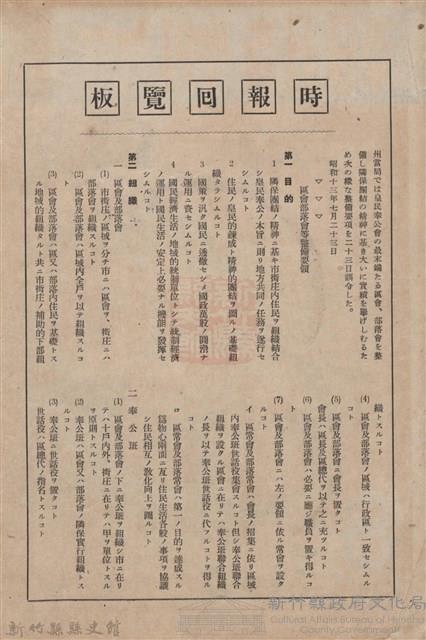 時報回覽板
州當局では皇民奉公會の最末端たる區會、部落會を整
備し隣保團結の精神に基き大いに實績を擧げしむるた
め次の樣な整備要項を二十三日訓令した。
昭和十三年七月二十三日
▽ ▽ ▽
區會部落會等整備要領
第一 目的
1 隣保團結ノ精神ニ基キ市街庄內住民ヲ組織結合
シ皇民奉公ノ本旨ニ則リ地方共同ノ任務ヲ遂行セ
シムルコト
2 住民ノ皇民的錬成ト精神的團結ヲ圖ルノ基礎組
織タラシムルコト
3 國策ヲ汎ク國民ニ透徹セシメ國政萬般ノ圓滑ナ
ル運用ニ資セシムルコト
4 國民經濟生活ノ地域的統制單位トシテ統制經濟
ノ運用ト國民生活ノ安定上必要ナル機能ヲ發揮セ
シムルコト
第二 組織
一 區會及部落會
(1) 市街庄ノ區域ヲ分チ市ニハ區會ヲ、街庄ニハ
部落會ヲ組織スルコト
(2) 區會及部落會ハ區域內全戶ヲ以テ組織スルコ
ト
(3) 區會及部落會ハ區又ハ部落內住民ヲ基礎トス
ル地域的組織タルト共ニ市街庄ノ補助的下部組
織トスルコト
(4) 區會及部落會ノ區域ハ行政區ト一致セシムル
コト
(5) 區會及部落會ニ會長ヲ置クコト
會長ハ區長及區總代ヲ以テ之ニ充ツルコト
(6) 區會及部落會ハ必要ニ應ジ職員ヲ置キ得ルコ
ト
(7) 區會及部落會ニハ左ノ要領ニ依ル常會ヲ設ク
ルコト
イ 區常會及部落常會ハ會長ノ招集ニ依リ區域
內奉公班世話役集會スルコト但シ奉公班聯合
組織ヲ設クル區會ニ在リテハ奉公班聯合組織
ノ長ヲ以テ奉公班世話役ニ代フルコトヲ得ル
コト
ロ 區常會及部落常會ハ第一ノ目的ヲ達成スル
爲物心兩面ニ亙リ住民生活各般ノ事項ヲ協議
シ住民相互ノ教化向上ヲ圖ルコト
二 奉公班
(1) 區會及部落會ノ下ニ奉公班ヲ組織シ市ニ在リ
テハ十戶內外、街庄ニ在リテハ甲ヲ單位トスル
ヲ原則トスルコト
(2) 奉公班ハ區會又ハ部落會ノ隣保實行組織トス
ルコト
(3) 奉公班ニ世話役ヲ置クコト
世話役ハ區總代ノ指名トスルコト
新竹縣縣史館
新竹縣政府文化局
Cultural Affairs Bureau of Hsinchu
County Government